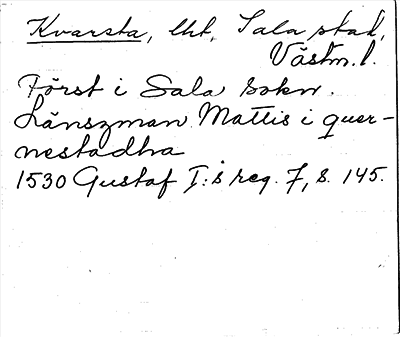 Kvarsta, lht, Sala stad,
Västm. l.
Först i Sala sokn.
Länszman Mattis i quer-
nestadha
1530 Gustaf I:s reg. 7, s. 145.